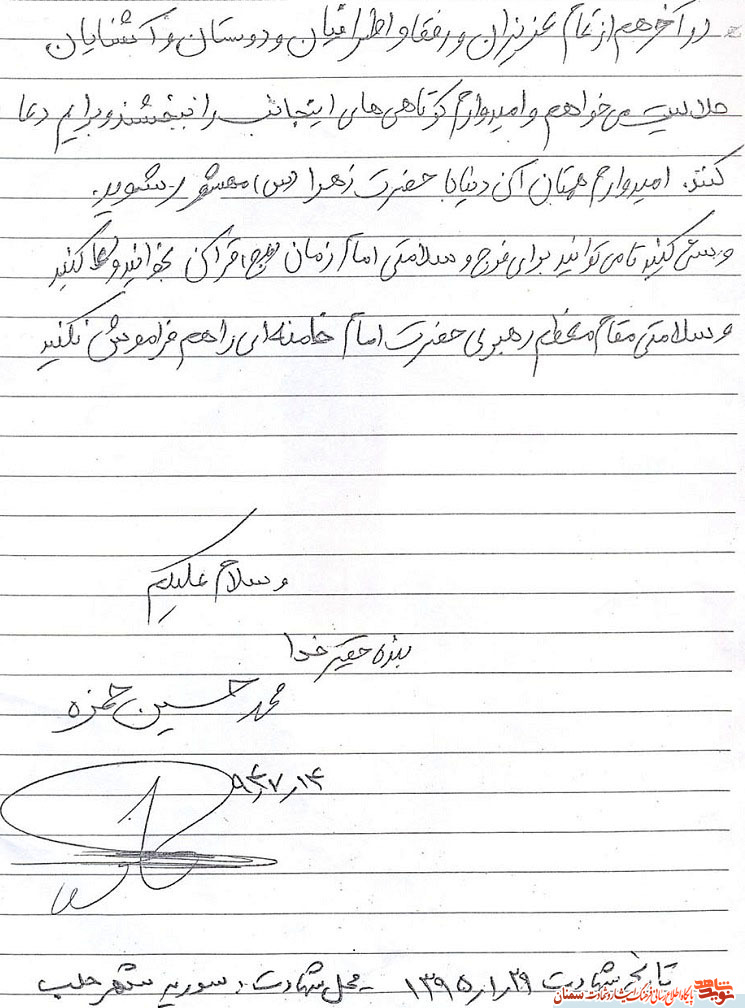 در آخر هم از تمام عزیزان و رفقا و اطرافیان و دوستان و آشنایان
حلالیت می‌خواهم و امیدوارم کوتاهی‌های اینجانب را ببخشند و برایم دعا
کنند. امیدوارم همتان آن دنیا با حضرت زهرا (س) محشور شوید.
و سعی کنید تا می‌توانید برای فرج و سلامتی امام زمان (عج) قرآن بخوانید و دعا کنید
و سلامتی مقام معظم رهبری حضرت امام خامنه‌ای را هم فراموش نکنید
و سلام علیکم
بنده حقیر خدا
محمد حسین حمزه
۹۴٫۷٫۱۴
تاریخ شهادت ۱۳۹۵٫۱٫۲۹ محل شهادت: سوریه شهر حلب
نوید شاهد
پایگاه اطلاع رسانی فرهنگ ایثار و شهادت - سمنان